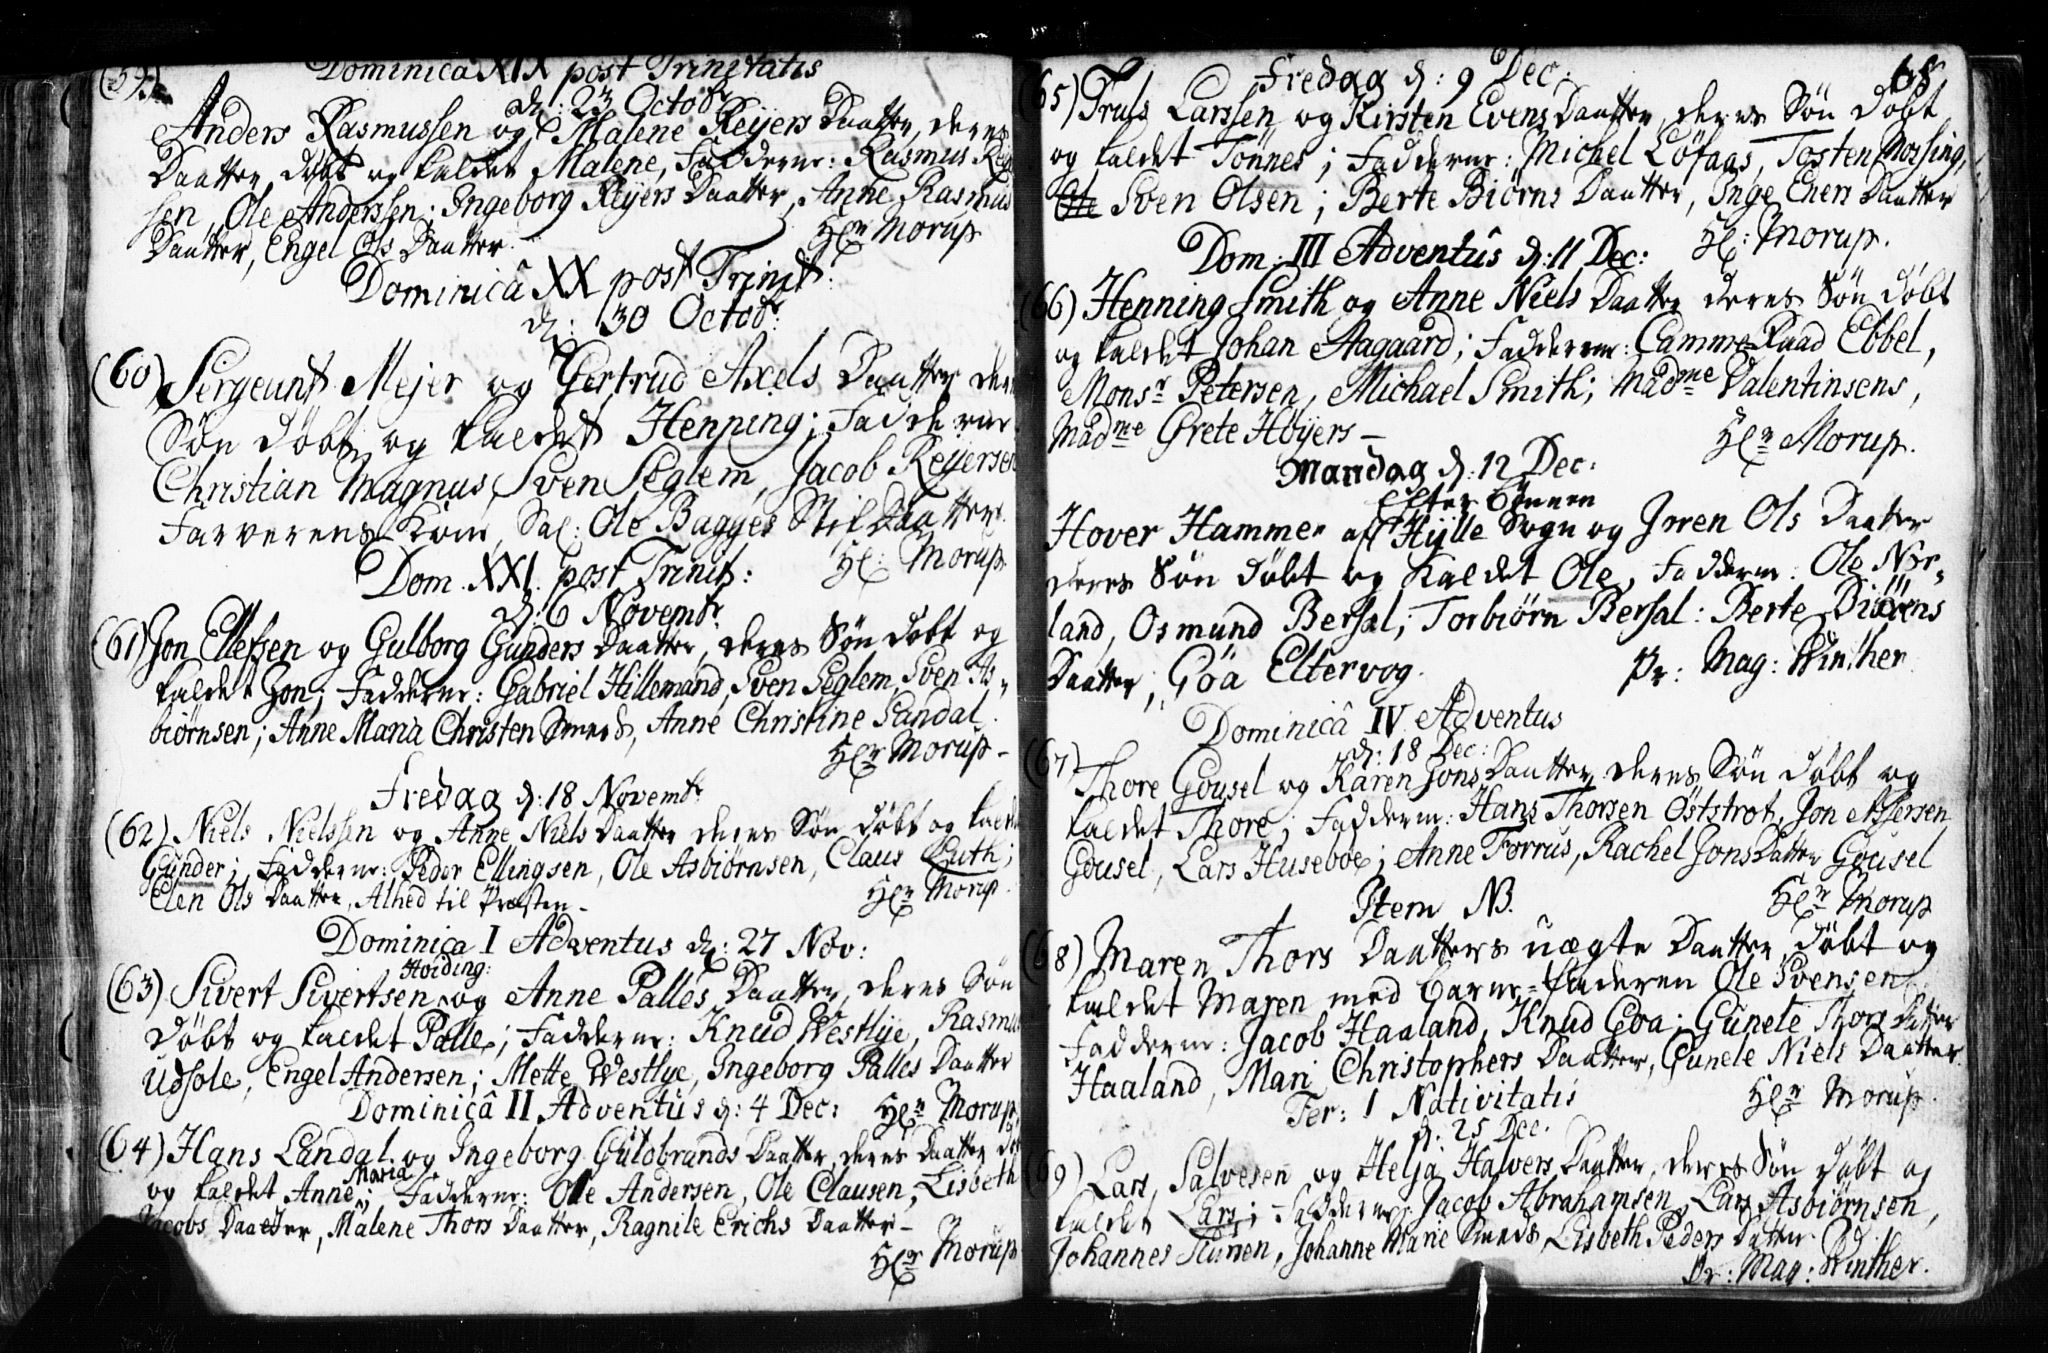 (59)
Dominica XIX post Trinitatis
d: 23 Octobr
Anders Rasmussen og Malene Reijers Daatter, deres
Daatter døbt og kaldet Malene, Fadderne: Rasmus Reij
sen, Ole Anderssen; Ingeborg Reijers Daatter, Anne Rasmus
Daatter, Engel Ols Daatter. Hr Morup
Dominicâ XX post Trinit:
d: 30 Octobr:
(60) Sergeant Mejer og Gertrud Axels Daatter der
Søn døbt og kaldet Henning; Fadderne:
Christian Magnus, Sven Seglem, Jacob Reijersen
Farverens Kone, Sal: Ole Bagges Stifdaatter.
Dom. XXI. post Trinit: Hr: Morup
d: 6 Novembr.
(61) Jon Ellefsen og Gulborg Gunders Daatter, deres Søn døbt og
kaldet Jon; Fadderne: Gabriel Hillemand, Sven Seglem, Sven As-
biørnsen; Anne Maria Christen Smeds, Anne Christine Sandal.
Hr Morup-
Fredag d: 18 Novembr
(62) Niels Nielssen og Anne Niels Daatter deres Søn døbt og kalde
Gunder; Fadderne: Peder Ellingsen, Ole Asbiørnsen, Claus Luth;
Elen Ols Daatter, Alhed til Præsten- Hr Morup.
Dominica I Adventus d: 27 Nov:
Hoiding:
(63) Sivert Sivertsen og Anne Palles Daatter, deres Søn
døbt og kaldet Palle; Fadderne: Knud Westlye, Rasmus
Udsole, Engel Andersen; Mette Westlye, Ingeborg Palles Daatter
Dominicâ II Adventus d: 4 Dec: Hr Morup,
(64) Hans Landal og Ingeborg Guldbrands Daatter, deres Daatter dø
Maria
og kaldet Anne; Fadderne: Ole Andersen, Ole Clausen, Lisbeth
Jacobs Daatter, Malene Thors Daatter, Ragnile Erichs Daatter-
Hr Morup
Fredag d: 9 Dec. 68.
65) Truls Larssen og Kirsten Evens Daatter, deres Søn døbt
og kaldet Tønnes; Fadderne: Michel Løfaas, Tosten Mossing,
Ole Sven Olsen; Berte Biørns Daatter, Inge Eners Daatter
Dom: III Adventûs d: 11 Dec: Hr: Morup.
66) Henning Smith og Anne Niels Daatter deres Søn døbt
og kaldet Johan Aagaard; Fadderne: Camme Raad Ebbel,
Monsr Petersen, Michael Smith; Madme Valentinsens,
Madme Grete Høyers- Hr Morup.
Mandag d: 12 Dec:
Efter Bønnen
Hover Hammer af Hylle Sogn og Jrren Ols Daatter
deres Søn døbt og kaldet Ole, Fadderne: Ole Nor-
land, Osmund Bersal; Torbiørn Bersal: Berte Biørens
Daatter, Göa Eltervog. Pr: Mag: Winther
Dominicâ IV Adventus
d: 18 Dec:
67) Thore Gousel og Karen Jons Daatter, deres Søn døbt og
kaldet Thore; Fadderne: Hans Thorsen Øststrot, Jon Assersen
Gousel, Lars Huseboe; Anne Forrus, Rachel Jons Datter Gousel
Item NB. Hr Morup
68) Maren Thors Daatters uægte Daatter døbt og
kaldet Maren med Barne-Faderen Ole Svensen
Fadderne: Jacob Haaland, Knud Goa; Gunele Thors Datter
Haaland, Mari Christophers Daatter, Gunele Niels Daatter.
Fer: 1 Nativitatis Hr Morup.
d: 25 Dec.
69) Lars Salvesen og Helja Halvers Daatter, deres Søn døbt og
kaldet Lars; Fadderne: Jacob Abrahamsen, Lars Asbiørnsen,
Johannes Stunen, Johanne Marie Smeds, Lisbeth Peders Datter.
Pr: Mag: Winther.